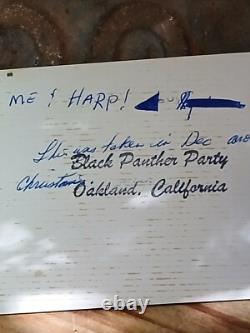 ME & HARP!
This was taken in Dec
Black Panther Party
Christmas
Oakland, California